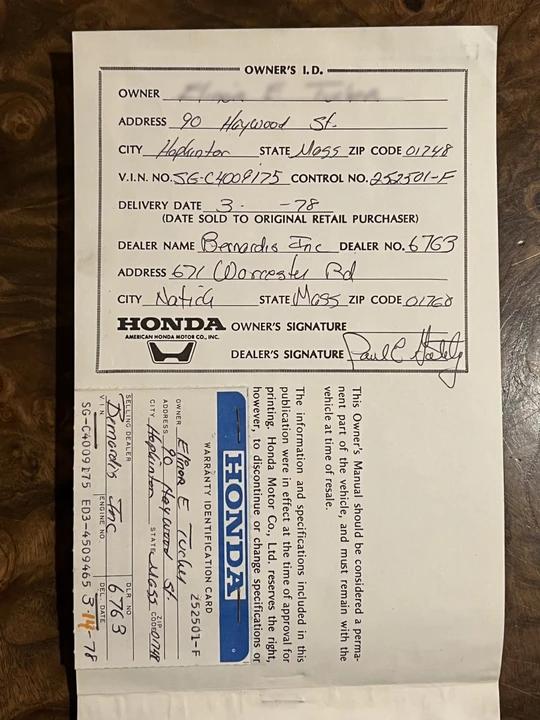 OWNER'S I.D.
OWNER
ADDRESS 90 Haywood St.
CITY Hopkinton STATE Mass ZIP CODE 01748
V.I.N. NO. SG-C4009175 CONTROL NO. 252501-F
DELIVERY DATE 3 - -78
(DATE SOLD TO ORIGINAL RETAIL PURCHASER)
DEALER NAME Bernardis Inc DEALER NO. 6763
ADDRESS 671 Worcester Rd
CITY Natick STATE Mass ZIP CODE 01760
HONDA OWNER'S SIGNATURE
AMERICAN HONDA MOTOR CO., INC.
DEALER'S SIGNATURE Paul C
This Owner's Manual should be considered a perma-
nent part of the vehicle, and must remain with the
vehicle at time of resale.
The information and specifications included in this
publication were in effect at the time of approval for
printing. Honda Motor Co., Ltd. reserves the right,
however, to discontinue or change specifications or
HONDA
WARRANTY IDENTIFICATION CARD
252501-F
OWNER Elinor E Tucker
ADDRESS 90 Haywood St.
CITY Hopkinton STATE Mass ZIP CODE 01748
SELLING DEALER DLR. NO.
Bernardis Inc 6763
V.I.N. ENGINE NO. DEL. DATE
SG-C4009175 ED3-4509465 3-14-78